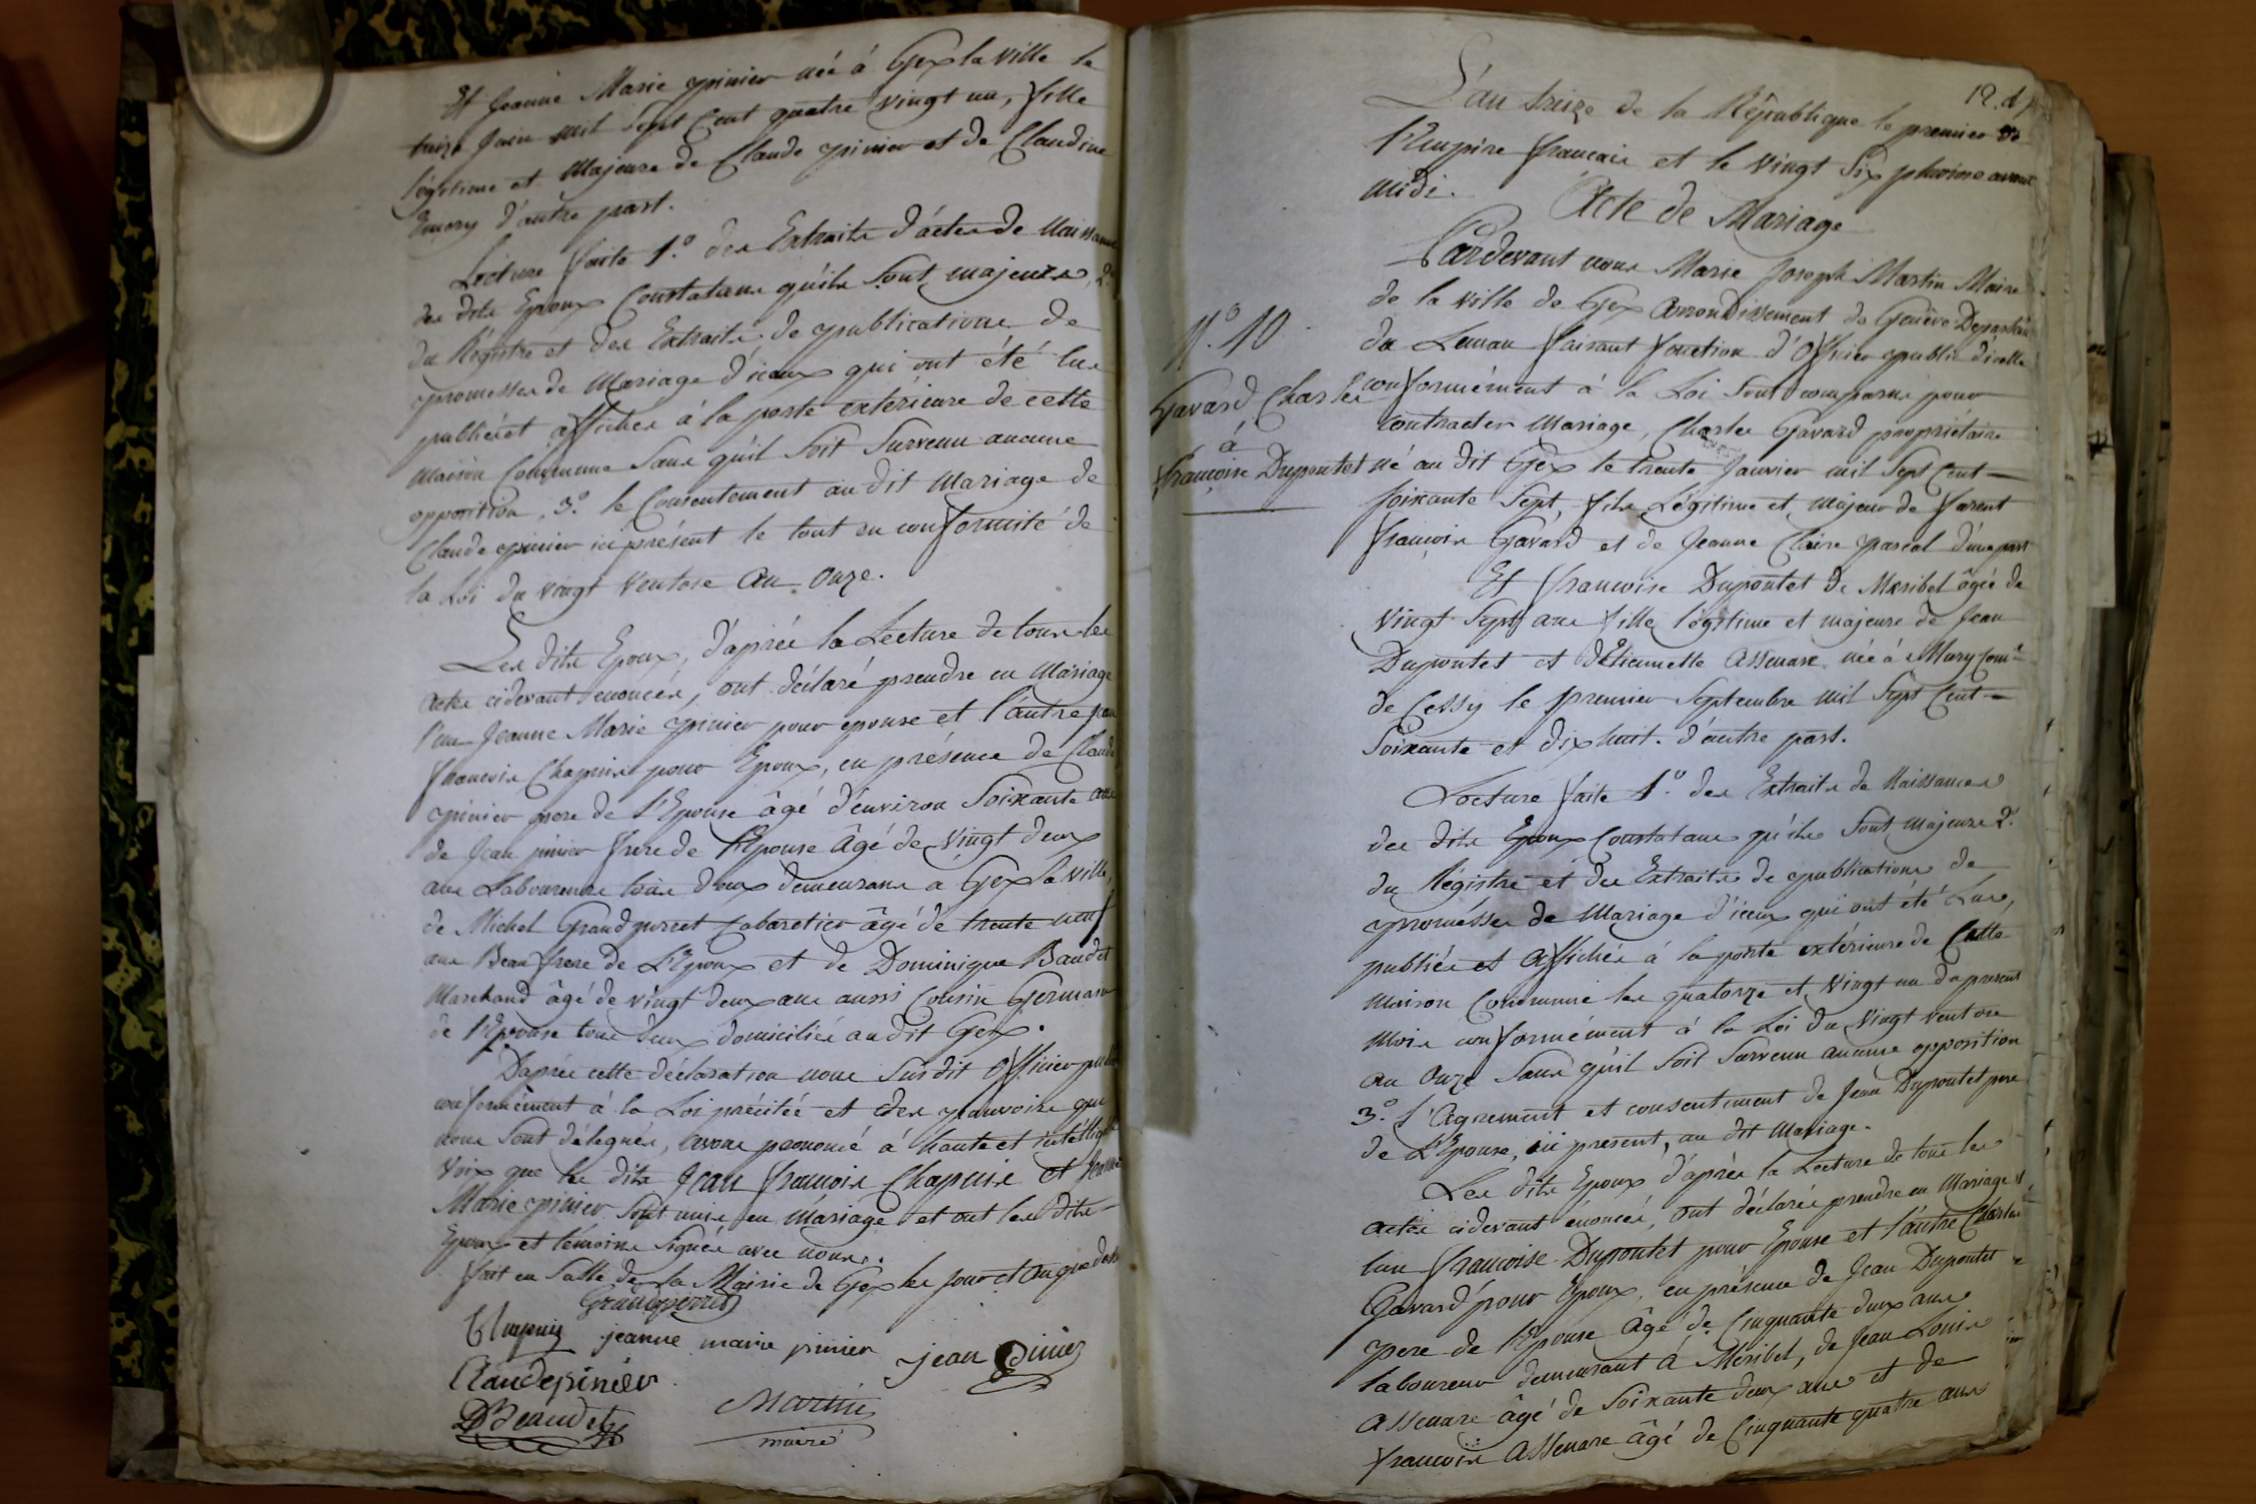 Et Jeanne Marie pinier née à Gex la ville le
treize Juin mil Sept Cent quatre vingt un, fille
légitime et Majeure de Claude pinier et de Claudine
Emery d'autre part.
Lecture faite 1.º des Extraits d'actes de Naissance
des dits Epoux Constatans qu'ils sont majeurs, 2º
du Régistre et des Extraits de publications de
promesses de Mariage d'iceux qui ont été lus
publiés et affichés à la porte extérieure de cette
Maison Commune Sans qu'il Soit Survenu aucune
opposition, 3.º le Consentement au dit Mariage de
Claude pinier ici présent le tout en conformité de
la Loi du vingt Ventose An Onze.
Les dits Epoux, d'après la Lecture de tous les
actes cidevant énoncés, ont déclaré prendre en Mariage
l'un Jeanne Marie pinier pour epouse et l'autre Jean
francois Chapuis pour Epoux, en présence de Claude
pinier pere de l'Epouse âgé d'environ Soixante ans
de Jean pinier frere de l'Epouse âgé de Vingt deux
ans Laboureurs tous deux demeurans a Gex la ville,
de Michel Grandperret Cabaretier âgé de trente neuf
ans Beau frere de L'Epoux et de Dominique Baudet
Marchand âgé de vingt deux ans aussi Cousin Germain
de l'Epouse tous deux domiciliés au dit Gex.
D'après cette déclaration nous Sus dit Officier public
conformément à la Loi précitée et des pouvoirs qui
nous sont délegués, avons prononcé à haute et intelligible
Voix que les dits Jean francois Chapuis et Jeanne
Marie pinier Sont unis en Mariage et ont les dits
Epoux et témoins Signés avec nous.
fait en Salle de la Mairie de Gex les jour et An que dessus
Grandperret
Chapuis jeanne marie pinier jean pinier
Claudepinier
D Beaudet
Martin
maire
12. d
L'an treize de la République le premier de
l'Empire francais et le Vingt Six pluviose avant
midi.
Acte de Mariage
Pardevant nous Marie Joseph Martin Maire
de la Ville de Gex Arrondissement de Genève Departement
du Leman faisant fonction d'Officier public d'icelle
N.º 10
Gavard Charles
à
françoise Dupontet
conformément à la Loi sont comparus pour
contracter Mariage, Charles Gavard propriétaire
né au dit Gex le trente Janvier mil Sept Cent
soixante Sept, fils Légitime et majeur de feu
francois Gavard et de Jeanne Claire pascal d'une part
Et francoise Dupontet de Meribel âgée de
Vingt Sept ans fille légitime et majeure de Jean
Dupontet et d'Etiennette Assenare née à Mury Comne
de Cessy le premier Septembre mil Sept Cent
Soixante et dix huit. d'autre part.
Lecture faite 1.º des Extraits de Naissances
des dits Epoux Constatans qu'ils sont Majeurs 2.º
du Régistre et des Extraits de publications de
promésses de Mariage d'iceux qui ont été Lus,
publiés et affichés à la porte extérieure de Cette
Maison Commune les quatorze et Vingt un du present
Mois conformément à la Loi du Vingt Ventose
an Onze Sans qu'il Soit Survenu aucune opposition
3.º l'Agrement et consentement de Jean Dupontet pere
de L'Epouse, ici present, au dit Mariage.
Les dits Epoux d'après la Lecture de tous les
actes cidevant énoncés, ont déclarés prendre en Mariage
l'un francoise Dupontet pour Epouse et l'autre Charles
Gavard pour Epoux, en présence de Jean Dupontet
pere de l'Epouse âgé de Cinquante deux ans
laboureur demeurant à Méribel, de Jean Louis
Assenare âgé de Soixante deux ans et de
francois Assenare âgé de Cinquante quatre ans